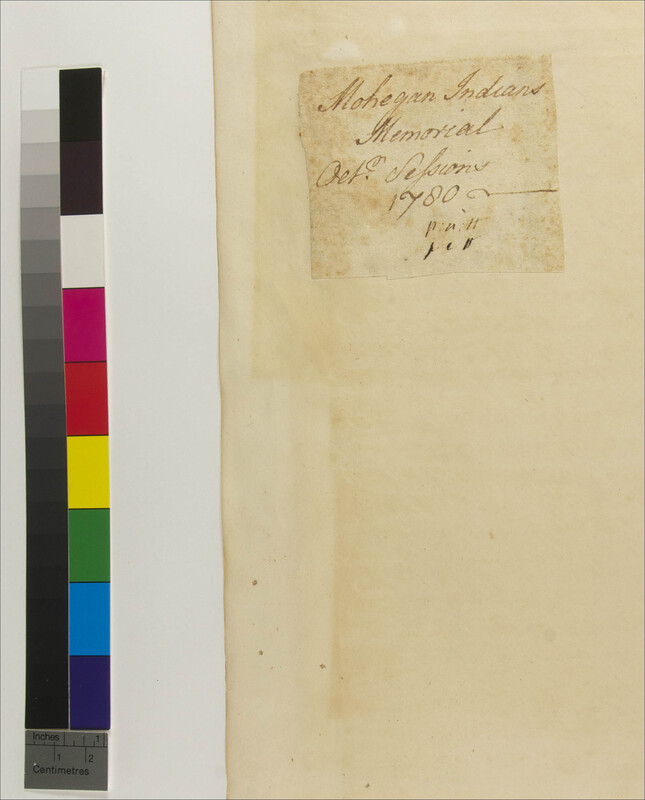 Mohegan Indians
Memorial
Octr. Sessions
1780
Inches 1
1 2
Centimetres